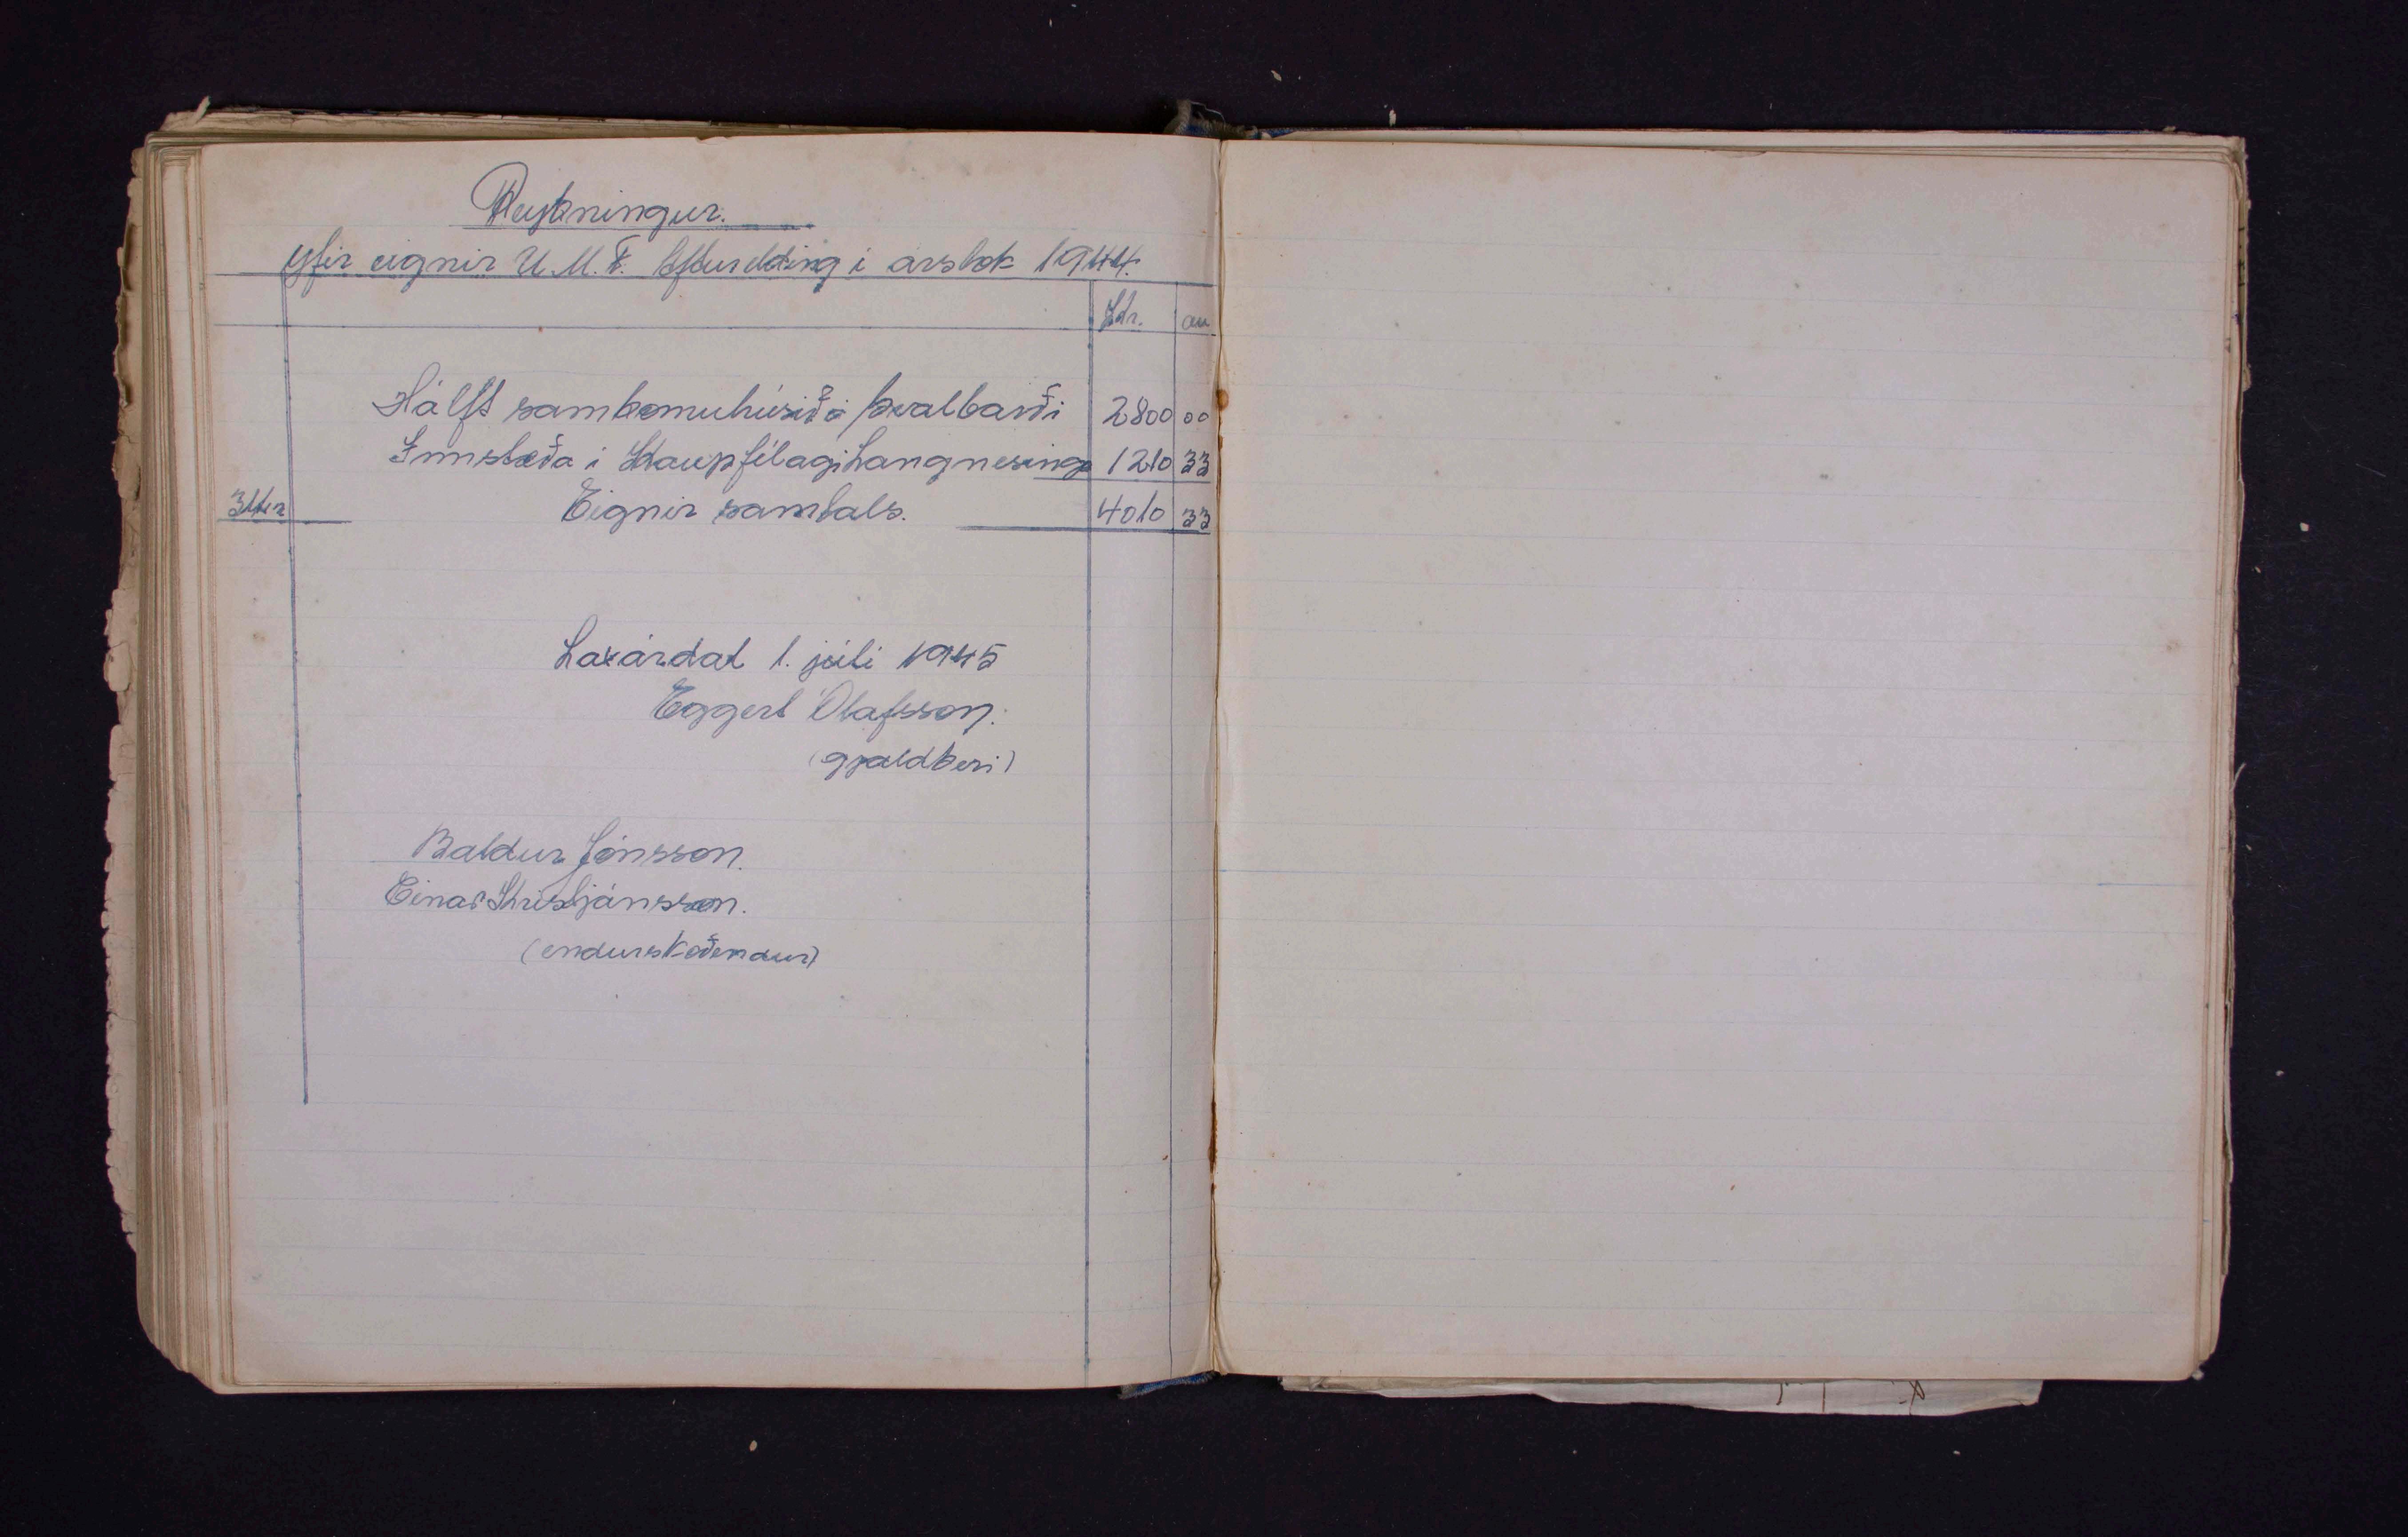 Reykningur.
yfir eignir U.M.F. Afturelding i árslok 1944.
Kr. au
Hálft samkomuhúsið á Svalbarði 2800 00
Innstæða i Kaupfélagi Langnesinga 1210 33
31/12 Eignir samtals. 4010 33
Laxárdal 1. júli 1945
Eggert Ólafsson.
(gjaldkeri)
Baldur Jónsson.
Einar Kristjánsson.
(endurskoðendur)